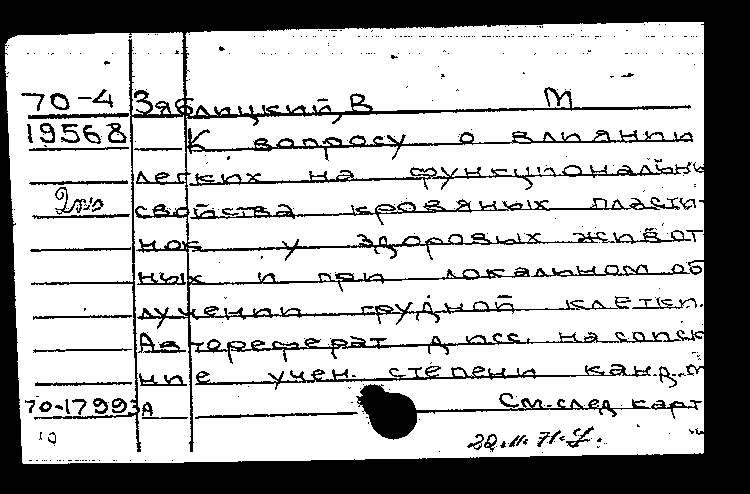 70-4 Зяблицкий, В М
19568 К вопросу о влиянии
легких на функциональны
свойства кровяных пласти-
нок у здоровых живот
ных и при локальном об
лучении грудной клетки.
Автореферат дисс. на соиск
ние учен. степени канд. м
70-17993А См. след карт